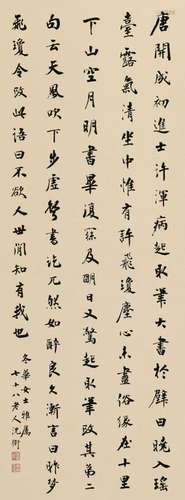 唐開成初進士許渾病起求筆大書於壁曰曉入瑤
臺露氣清坐中惟有許飛瓊塵心未盡俗緣在十里
下山空月明書畢復寐及明日又驚起取筆改其第二
句云天風吹下步虛聲書訖兀然如醉良久漸言曰昨夢
飛瓊令改此語曰不欲人世聞知有我也
冬華女士雅屬
七十八老人沈衛